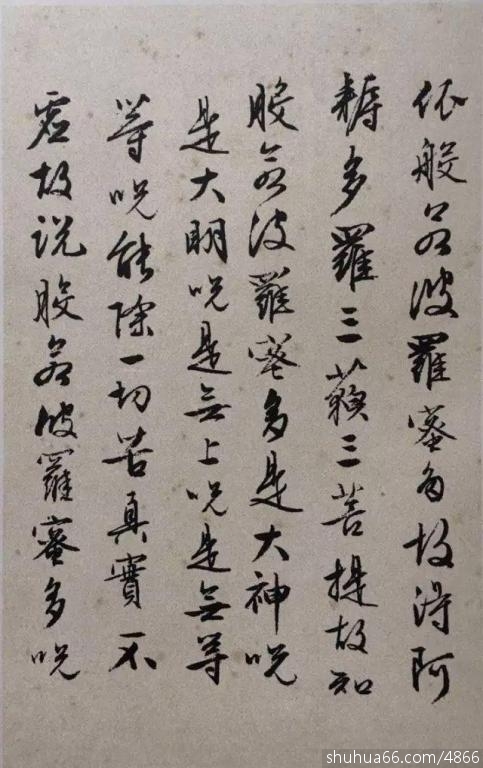 依般若波羅蜜多故得阿
耨多羅三藐三菩提故知
般若波羅蜜多是大神呪
是大明呪是無上呪是無等
等呪能除一切苦真實不
虛故說般若波羅蜜多呪
shuhua66.com/4866